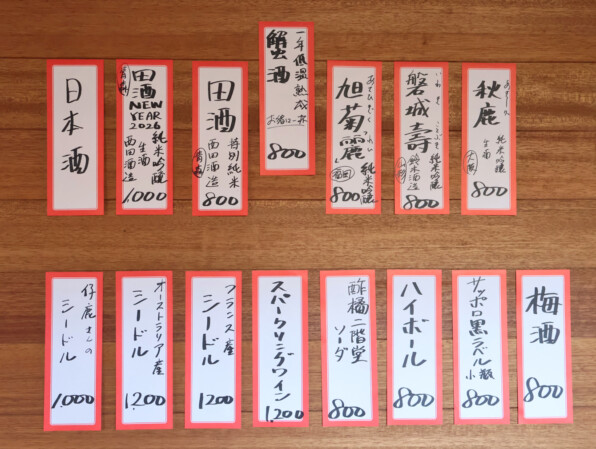 日本酒
青森
田酒
NEW
YEAR
2026
純米吟醸
生酒
西田酒造
1,000
田酒
特別純米
青森
西田酒造
800
一年低温熟成
蟹酒
800
あさひきく
旭菊 麗
純米吟醸
福岡
800
いわき ことぶき
磐城 壽
純米吟醸
鈴木酒造
800
あきしか
秋鹿
純米吟醸
生酒
大阪
800
仔鹿さんの
シードル
1,000
オーストラリア産
シードル
1,200
フランス産
シードル
1,200
スパークリングワイン
1,200
酢橘二階堂
ソーダ
800
ハイボール
800
サッポロ黒ラベル
小瓶
800
梅酒
800